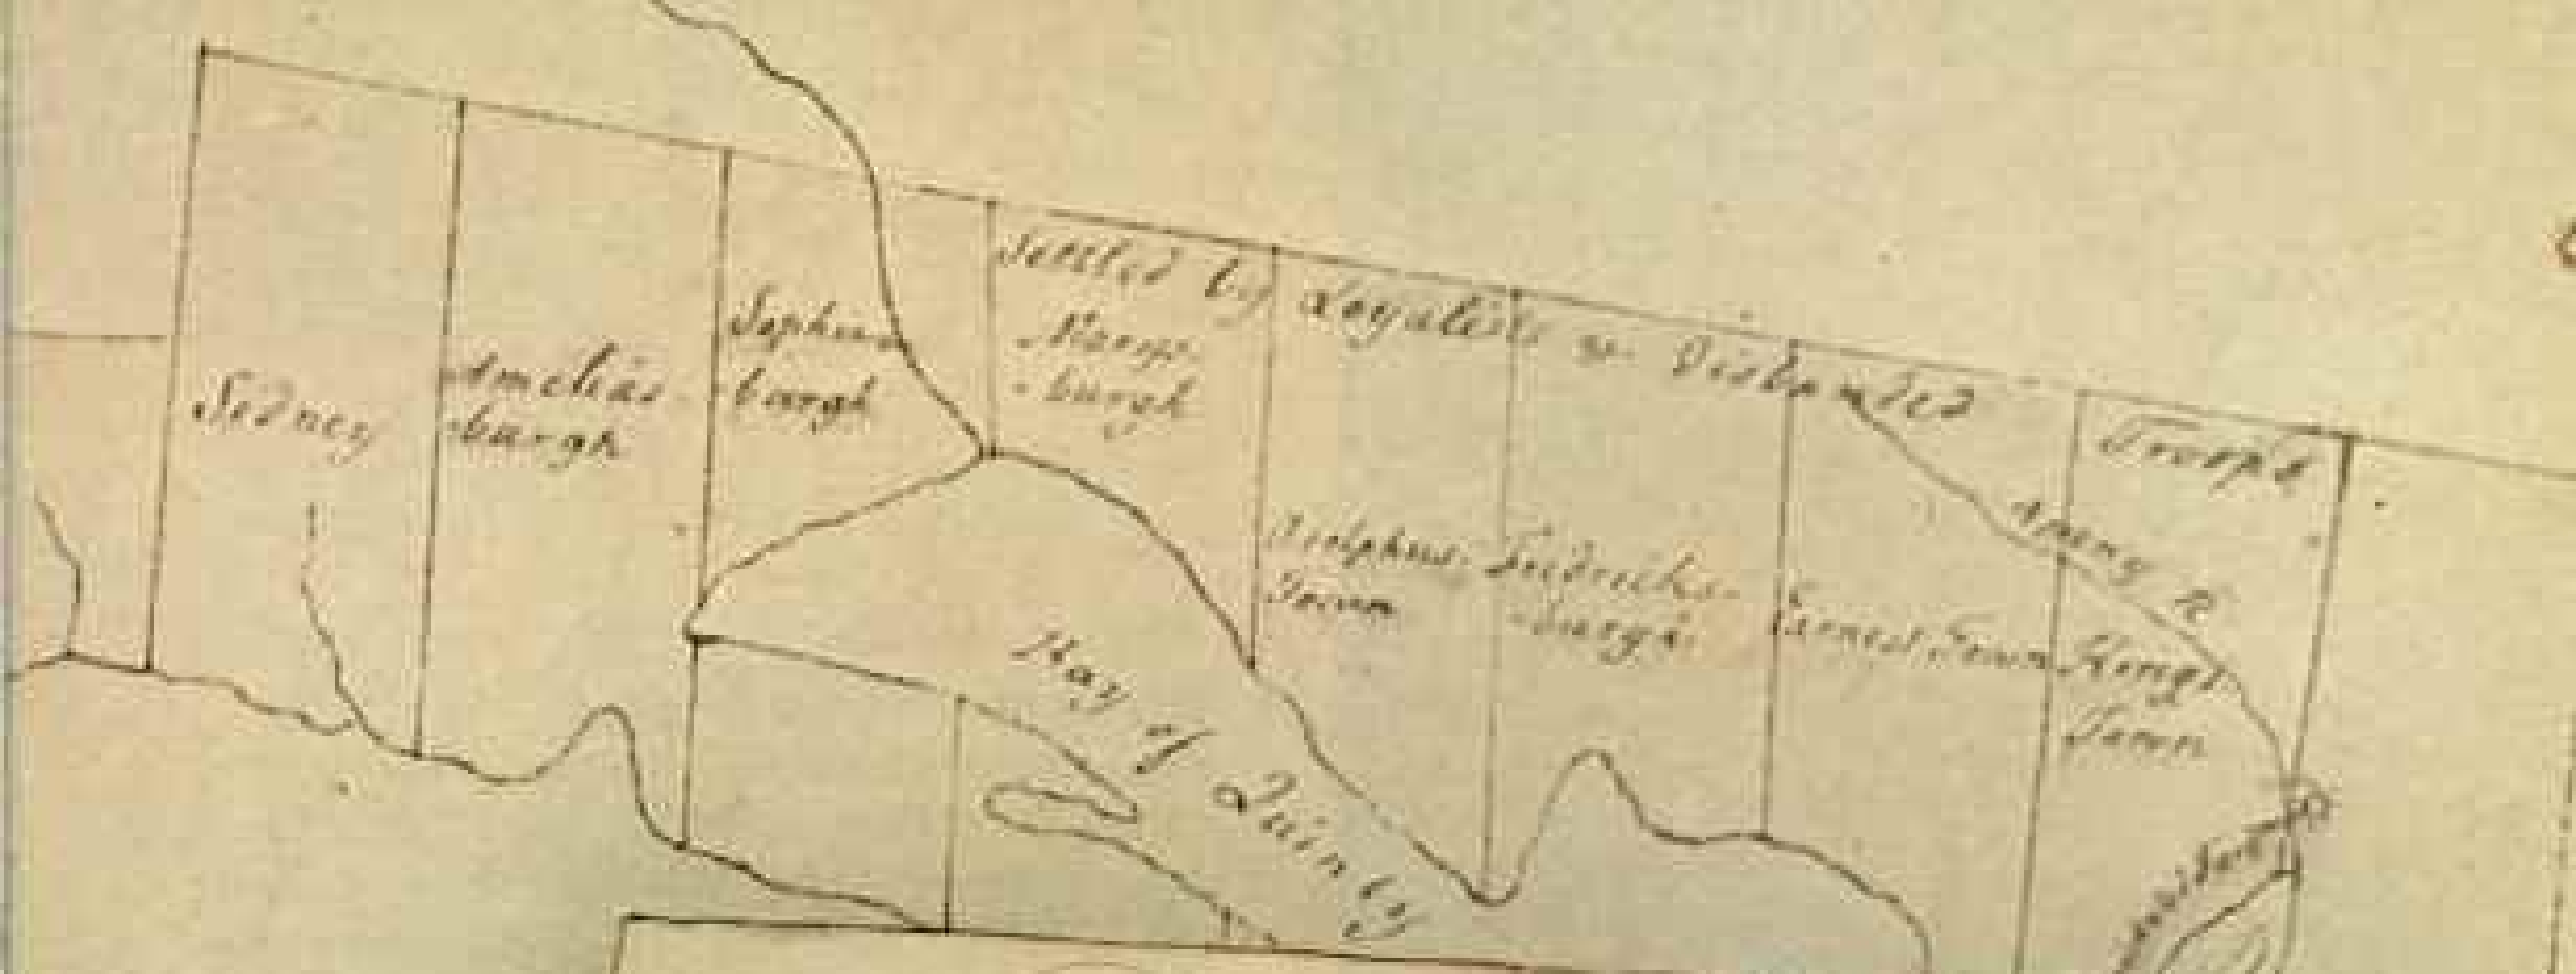 Settled by Loyalists & Disbanded Troops
Sidney
Amelias
-burgh
Sophias
-burgh
Marys-
-burgh
Adolphus-
Town
Fredricks-
-burgh
Earnest Town
Kings
Town
R
Bay of Quinty